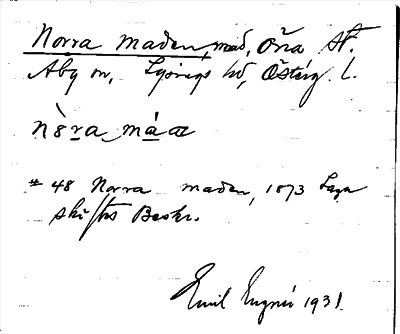 Norra maden, mad, Öria st.
Aby sn, Lysings hd, Östérg. l.
nè̱ra má̱a
* 48 Norra maden, 1873 Laga
skiftes Beskr.
Emil 1931